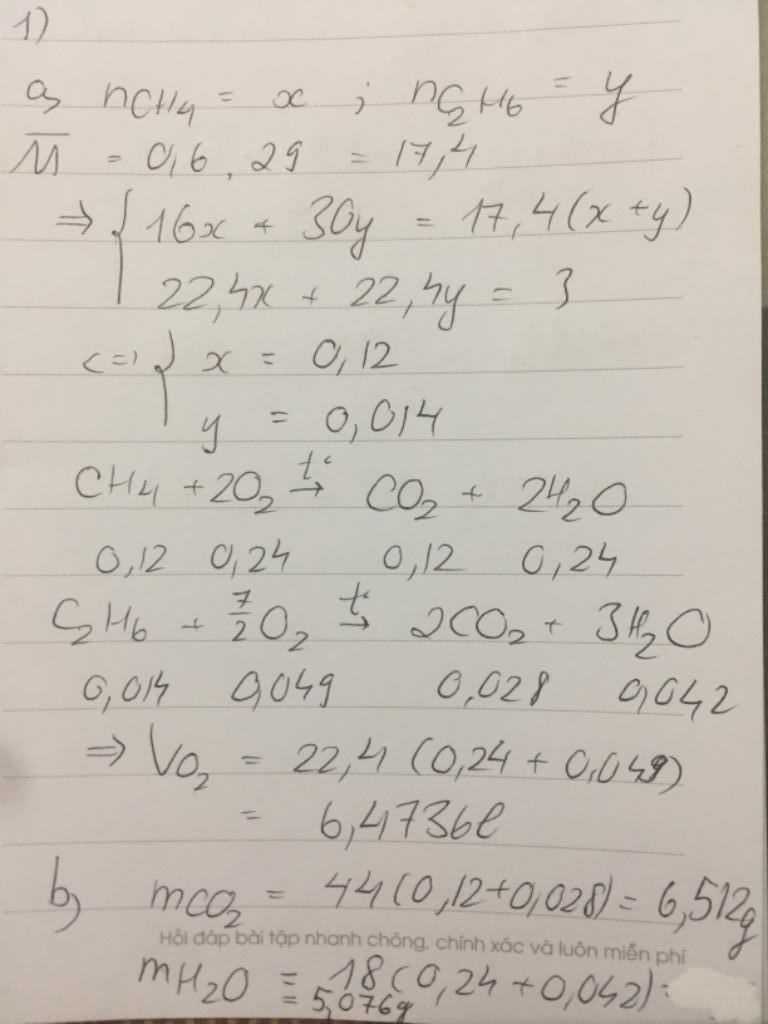 1)
a, nCH4 = x ; nC2H6 = y
M̅ = 0,6 . 29 = 17,4
⇒ { 16x + 30y = 17,4(x+y)
22,4x + 22,4y = 3
<=> { x = 0,12
y = 0,014
CH4 + 2O2 t°→ CO2 + 2H2O
0,12 0,24 0,12 0,24
C2H6 + 7/2O2 t°→ 2CO2 + 3H2O
0,014 0,049 0,028 0,042
⇒ VO2 = 22,4 (0,24 + 0,049)
= 6,4736l
b, mCO2 = 44(0,12+0,028) = 6,512g
Hỏi đáp bài tập nhanh chóng, chính xác và luôn miễn phí
mH2O = 18(0,24 + 0,042) =
= 5,076g